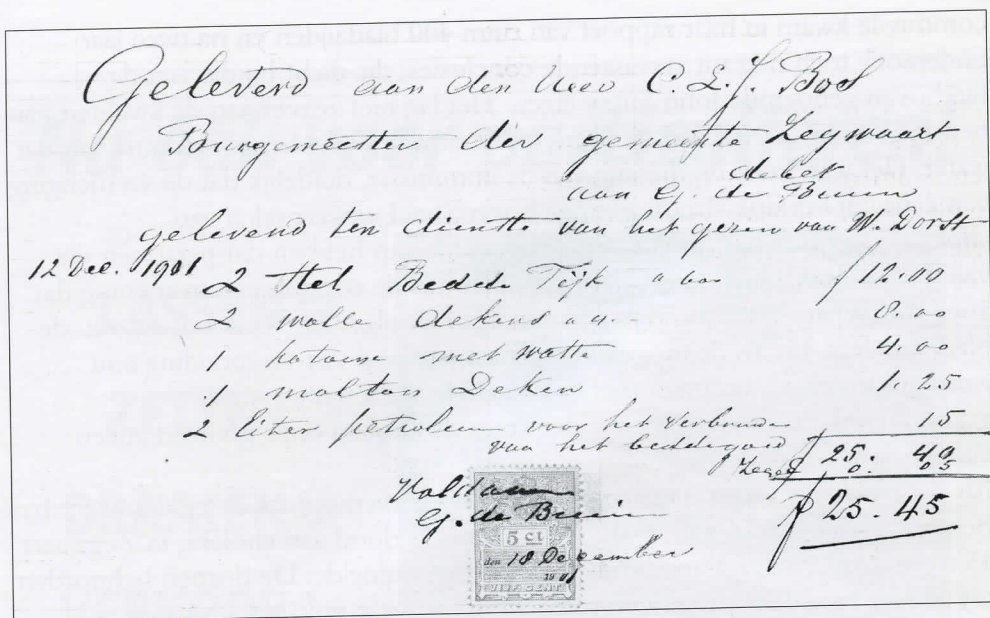 Geleverd aan den Heer C. L. J. Bos
Burgemeester der gemeente Zegwaart
debet
aan G. de Bruin
geleverd ten dienste van het gezin van W. Dorst
12 Dec. 1901 2 stel Bedde Tijk a ƒ 12.00
2 wolle dekens a 8.00
1 katoene met watte 4.00
1 molton Deken 1.25
2 liter petroleum voor het verbranden 15
van het beddegoed ƒ 25.40
Zegel 0.05
Voldaan ƒ 25.45
G. de Bruin
5 ct
den 18 December
1901
VIJF CENT